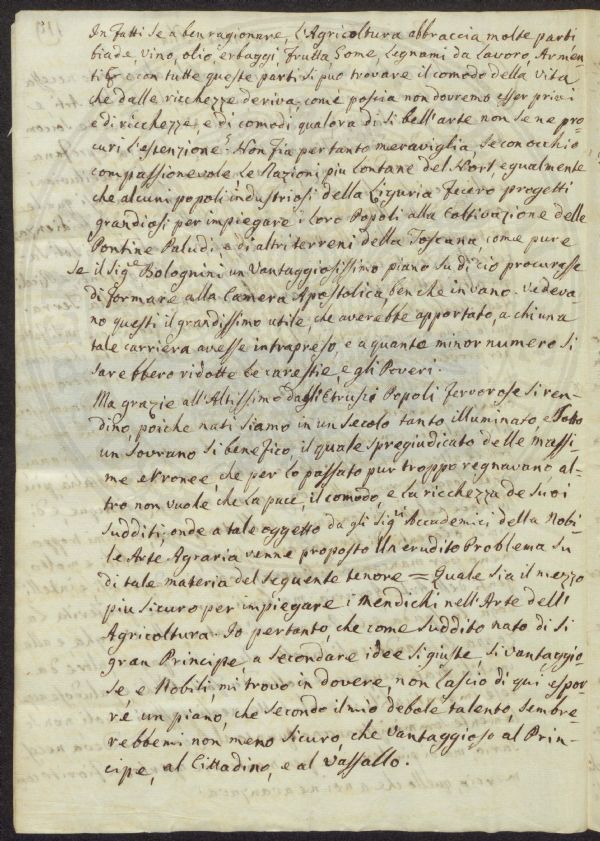 In fatti se a ben ragionare, L'Agricoltura abbraccia molte parti
biade, vino, olio, erbaggi, frutta Gome, Legnami da Lavoro, Armen-
ti & e con tutte queste parti si può trovare il comodo della vita
che dalle ricchezze deriva, come poscia non dovremo esser privi
e di ricchezze, e di comodi qualora di si bell'arte non se ne pro-
curi l'estenzione. Non fia pertanto meraviglia, se con occhio
compassionevole Le Nazioni più Lontane del Nort, egualmente
che alcuni popoli industriosi della Liguria fecero progetti
grandiosi per impiegare i Loro Popoli alla Coltivazione delle
Pontine Paludi, e di altri terreni della Toscana, come pure
se il Sig.e Bolognini un vantaggiosissimo piano su di ciò procurasse
di formare alla Camera Apostolica, ben che in vano. Vedeva-
no questi il grandissimo utile, che averebbe apportato, a chi una
tale carriera avesse intrapreso, e a quanto minor numero si
sarebbero ridotte le carestie, e gli Poveri.
Ma grazie all'Altissimo dagli Etrusci Popoli fervorose si ren-
dino, poiche nati siamo in un secolo tanto illuminato, e sotto
un Sovrano si benefico, il quale spregiudicato delle massi-
me erronee, che per lo passato pur troppo regnavano, al-
tro non vuole, che La pace, il comodo, e La ricchezza de suoi
sudditi; onde a tale oggetto da gli Sig.ri Accademici della Nobi-
le Arte Agraria venne proposto Un erudito Problema su
di tale materia del seguente tenore = Quale sia il mezzo
più sicuro per impiegare i Mendichi nell'Arte dell'
Agricoltura. Io pertanto, che come suddito nato di si
gran Principe, a secondare idee si giuste, si vantaggio-
se e Nobili, mi trovo in dovere, non Lascio di qui espor-
re un piano, che secondo il mio debole talento, sembre-
rebbemi non meno sicuro, che vantaggioso al Prin-
cipe, al Cittadino, e al Vassallo.